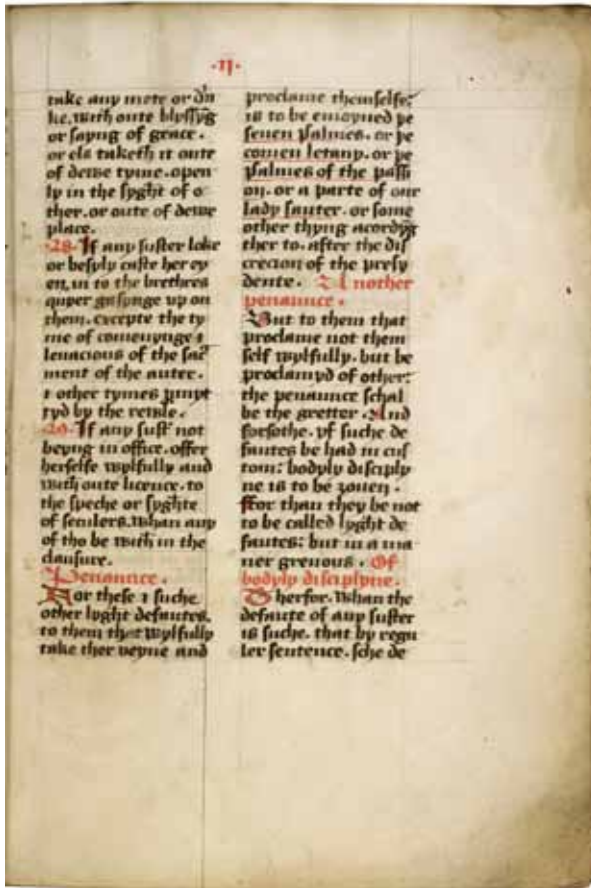 ·II·
take any mete or dñ
ke, with oute blyssyg̃
or sayng of grace.
or els taketh it oute
of dewe tyme. open
ly in the syght of o
ther. or oute of dewe
place.
·28· If any suster loke
or besyly caste her ey
en, in to the brethres
quyer gasynge vp on
them. excepte the ty
me of comenynge ⁊
leuacions of the sac̃
ment of the auter.
⁊ other tymes p̃myt
tyd by the rewle.
·29· If any sust̃ not
beyng in office. offer
herselfe wylfully and
with oute licence. to
the speche or syghte
of seculers. whan any
of tho be with in the
clausure.
Penaunce.
For these ⁊ suche
other lyght defautes.
to them that wylfully
take ther veyne and
proclame themselfe:
is to be enioyned þe
seuen psalmes. or þe
comen letany. or þe
psalmes of the passi
on. or a parte of our
lady sauter. or some
other thyng acordyg̃
ther to. after the dis
crecion of the presy
dente. A nother
penaunce.
But to them that
proclame not them
self wylfully. but be
proclamyd of other:
the penaunce schal
be the gretter. And
forsothe. yf suche de
fautes be had in cus
tom: bodyly discyply
ne is to be ȝouen.
ffor than they be not
to be called lyght de
fautes: but in a ma
ner greuous. Of
bodyly discyplyne.
Therfor. whan the
defaute of any suster
is suche. that by regu
ler sentence. sche de